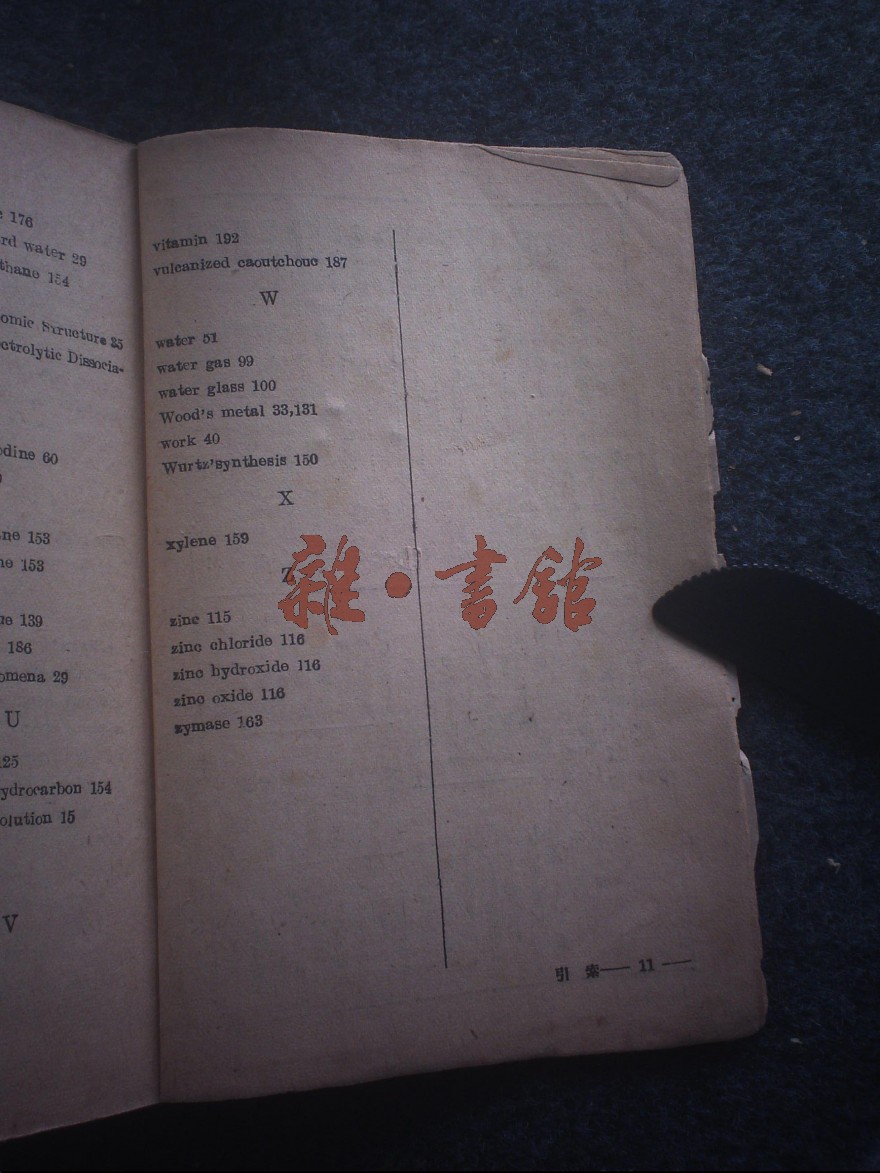 176
rd water 29
thane 154
omic Structure 35
ectrolytic Dissocia-
odine 60
ne 153
ne 153
ne 139
186
omena 29
U
125
ydrocarbon 154
olution 15
V
vitamin 192
vulcanized caoutchouc 187
W
water 51
water gas 99
water glass 100
Wood's metal 33,131
work 40
Wurtz'synthesis 150
X
xylene 159
Z
zinc 115
zinc chloride 116
zinc hydroxide 116
zinc oxide 116
zymase 163
雜·書館
引 索—— 11 ——